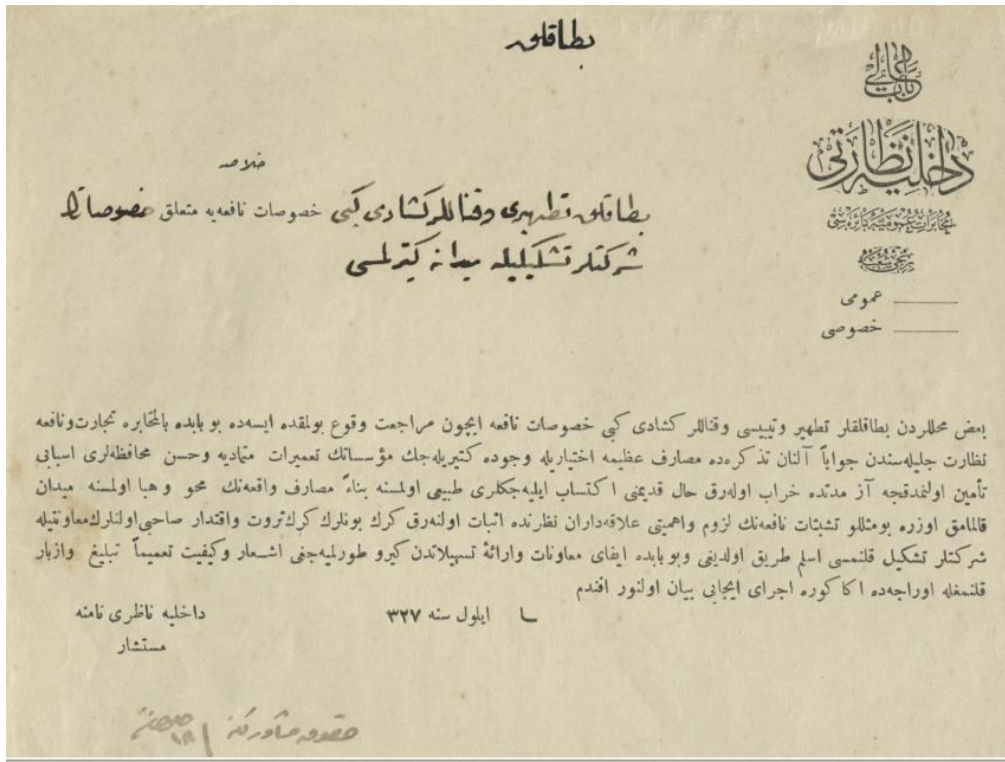 بطاقلق
باب عالی
داخلیه نظارتی
مخابرات عمومیه دائره‌سی
شعبه
عمومی
خصوصی
خلاصه
بطاقلق تطهیری وقناللر کشادی کبی خصوصات نافعه‌یه متعلق خصوصاتك
شرکتلر تشکیلیله میدانه کتیرلمسی
بعض محللردن بطاقلقلر تطهیر وتیبیسی وقناللر کشادی کبی خصوصات نافعه ایچون مراجعت وقوع بولمقده ایسه‌ده بو بابده بالمخابره تجارت ونافعه
نظارت جلیله‌سندن جواباً آلنان تذکره‌ده مصارف عظیمه اختیاریله وجوده کتیریله‌جك مؤسساتك تعمیرات متمادیه وحسن محافظه‌لری اسبابی
تأمین اولنمدقجه آز مدتده خراب اوله‌رق حال قدیمنی اکتساب ایلیه‌جکلری طبیعی اولمسنه بناءً مصارف واقعه‌نك محو وهبا اولمسنه میدان
قالمامق اوزره بومثللو تشبثات نافعه‌نك لزوم واهمیتی علاقه‌داران نظرنده اثبات اولنه‌رق کرك بونلرك کرك ثروت واقتدار صاحبی اولنلرك معاونتیله
شرکتلر تشکیل قلنمسی اسلم طریق اولدیغی وبو بابده ایفای معاونات وارائهٔ تسهیلاتدن کیرو طورلمیه‌جغی اشعار وکیفیت تعمیماً تبلیغ وازبار
قلنمغله اوراجه‌ده اکا کوره اجرای ایجابی بیان اولنور افندم
ایلول سنه ٣٢٧
داخلیه ناظری نامنه
مستشار
حقوق مشاورلکنه
١٨